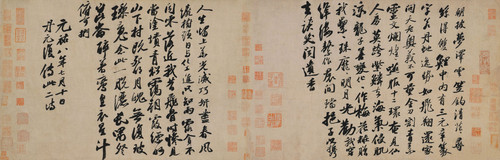 朝披夢澤雲笠釣清茫茫尋
絲得雙鯉中有三元章篆
字若丹蛇逸勢如飛翔還家
問天老奧義不可量金刀割青素
靈文爛煌煌嚥服十二環奄見仙
人房暮跨紫鱗去海氣侵肌
涼龍子善變化化作梅花妝贈
我纍纍珠靡靡明月光勸我穿
絳縷繫作裙間襠挹子以攜
去談笑聞遺香
人生燭上華光滅巧妍盡春風
繞樹頭日與化工進只知雨露貪不
聞零落近我昔飛骨時慘見
當塗墳青松靄朝霞縹緲
山下村既死明月魄無復玻
瓈魂念此一脫灑長嘯祭
崑崙醉著鸞皇衣星斗
俯可捫
元祐八年七月十日
丹元復傳此二詩